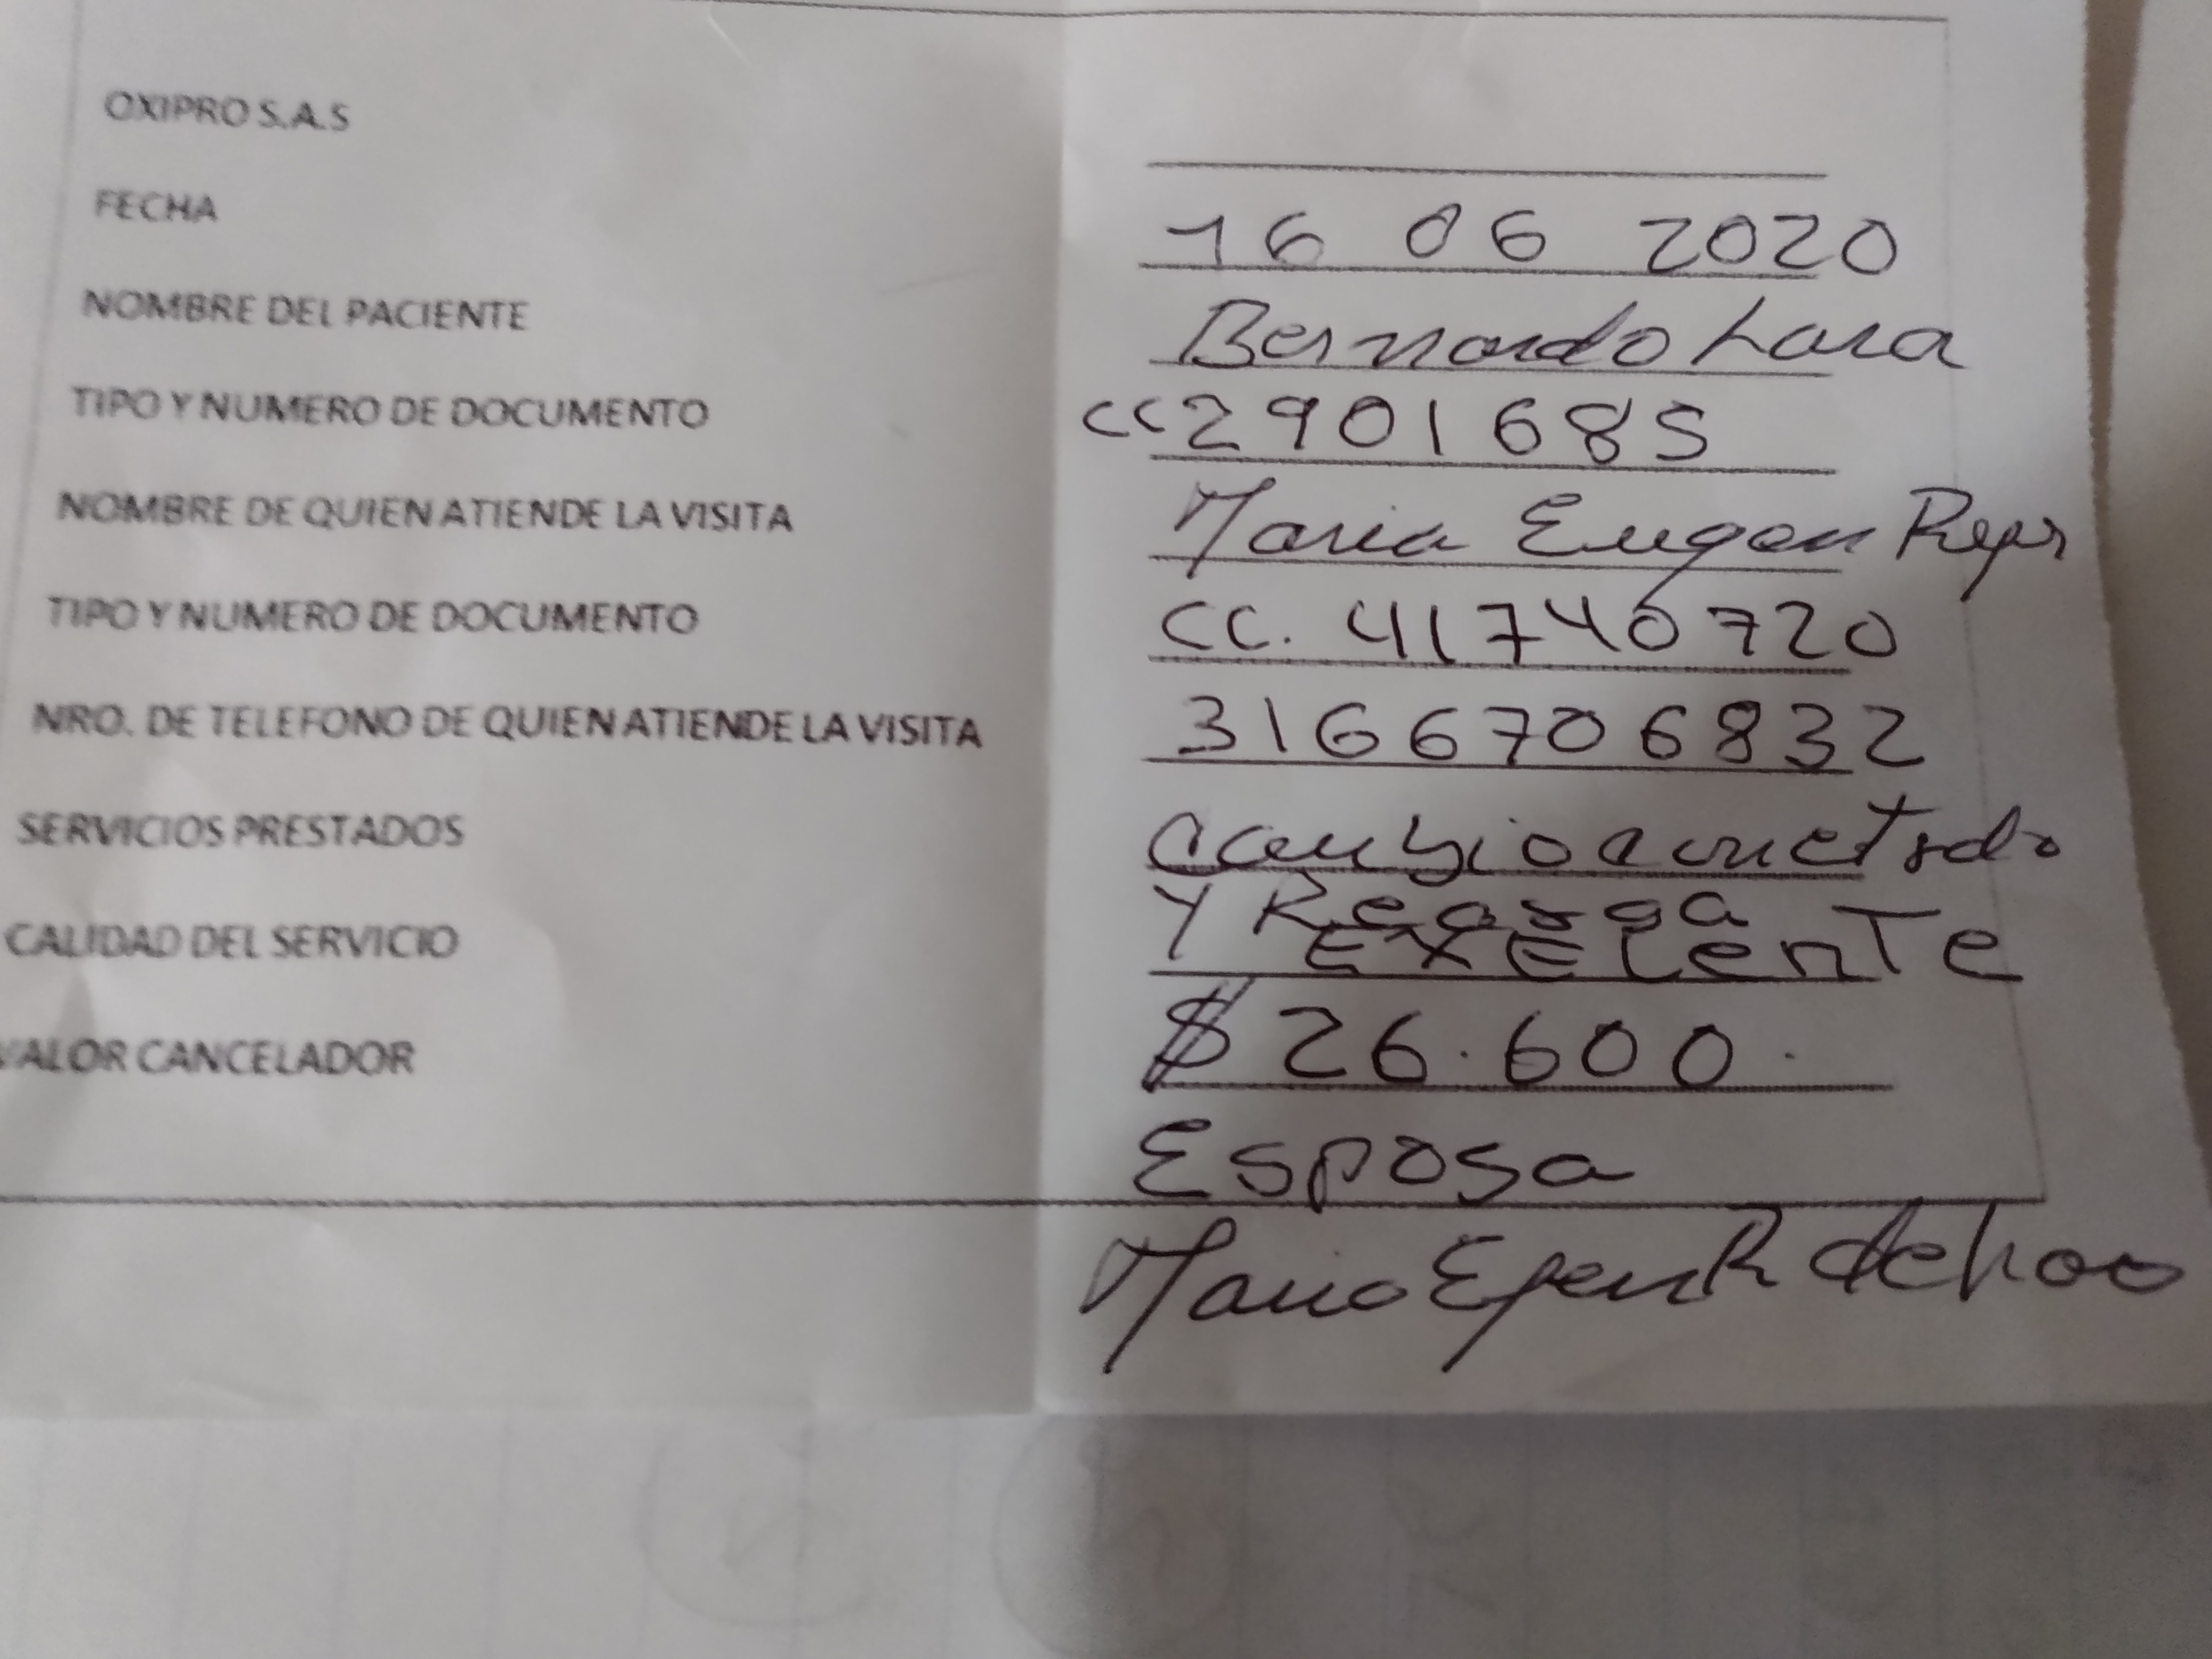 OXIPRO S.A.S
FECHA 16 06 2020
NOMBRE DEL PACIENTE Bernardo Lara
TIPO Y NUMERO DE DOCUMENTO CC 2901685
NOMBRE DE QUIEN ATIENDE LA VISITA Maria Eugen Reyes
TIPO Y NUMERO DE DOCUMENTO CC. 41740720
NRO. DE TELEFONO DE QUIEN ATIENDE LA VISITA 3166706832
SERVICIOS PRESTADOS cambio
Y Recarga
CALIDAD DEL SERVICIO EXELente
VALOR CANCELADOR $ 26.600.
Esposa
Maria R de